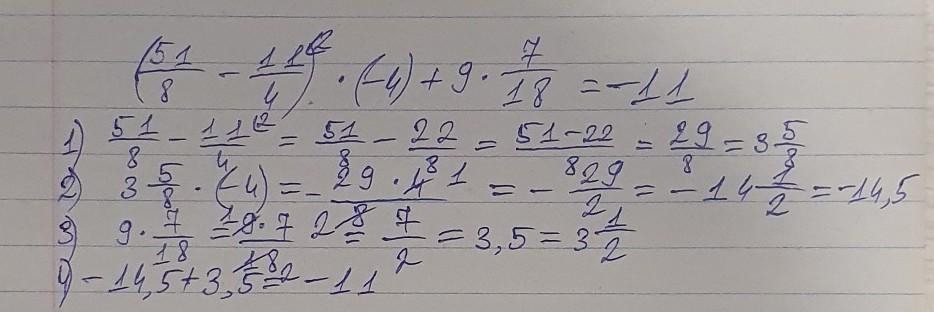 (51/8 - 11/4 ⁽²) · (-4) + 9 · 7/18 = -11
1) 51/8 - 11/4 ⁽² = 51/8 - 22/8 = 51-22/8 = 29/8 = 3 5/8
2) 3 5/8 · (-4) = - 29 · 4 1/8 2 = - 29/2 = - 14 1/2 = -14,5
3) 9 · 7/18 = 1 9 · 7/18 2 = 7/2 = 3,5 = 3 1/2
4) - 14,5 + 3,5 = - 11